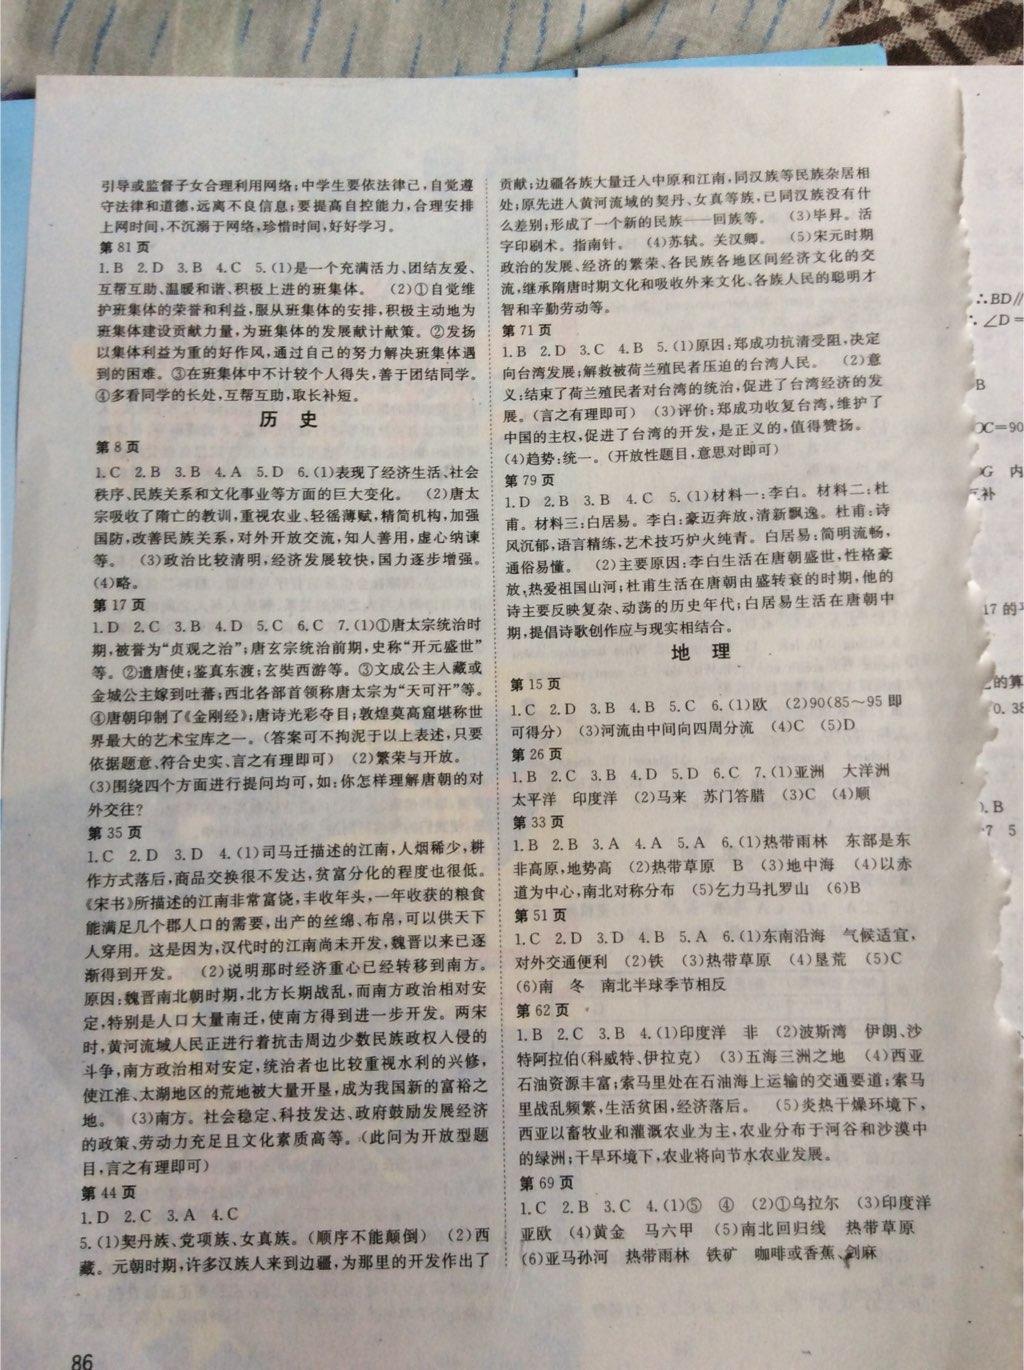 引导或监督子女合理利用网络;中学生要依法律己,自觉遵
守法律和道德,远离不良信息;要提高自控能力,合理安排
上网时间,不沉溺于网络,珍惜时间,好好学习。
第 81 页
1. B 2. D 3. B 4. C 5. (1)是一个充满活力、团结友爱、
互帮互助、温暖和谐、积极上进的班集体。 (2)①自觉维
护班集体的荣誉和利益,服从班集体的安排,积极主动地为
班集体建设贡献力量,为班集体的发展献计献策。②发扬
以集体利益为重的好作风,通过自己的努力解决班集体遇
到的困难。③在班集体中不计较个人得失,善于团结同学。
④多看同学的长处,互帮互助,取长补短。
历 史
第 8 页
1. C 2. B 3. B 4. A 5. D 6. (1)表现了经济生活、社会
秩序、民族关系和文化事业等方面的巨大变化。 (2)唐太
宗吸收了隋亡的教训,重视农业、轻徭薄赋,精简机构,加强
国防,改善民族关系,对外开放交流,知人善用,虚心纳谏
等。 (3)政治比较清明,经济发展较快,国力逐步增强。
(4)略。
第 17 页
1. D 2. C 3. B 4. D 5. C 6. C 7. (1)①唐太宗统治时
期,被誉为“贞观之治”;唐玄宗统治前期,史称“开元盛世”
等。②遣唐使;鉴真东渡;玄奘西游等。③文成公主入藏或
金城公主嫁到吐蕃;西北各部首领称唐太宗为“天可汗”等。
④唐朝印制了《金刚经》;唐诗光彩夺目;敦煌莫高窟堪称世
界最大的艺术宝库之一。(答案可不拘泥于以上表述,只要
依据题意、符合史实、言之有理即可) (2)繁荣与开放。
(3)围绕四个方面进行提问均可,如:你怎样理解唐朝的对
外交往?
第 35 页
1. C 2. D 3. D 4. (1)司马迁描述的江南,人烟稀少,耕
作方式落后,商品交换很不发达,贫富分化的程度也很低。
《宋书》所描述的江南非常富饶,丰收年头,一年收获的粮食
能满足几个郡人口的需要,出产的丝绵、布帛,可以供天下
人穿用。这是因为,汉代时的江南尚未开发,魏晋以来已逐
渐得到开发。 (2)说明那时经济重心已经转移到南方。
原因:魏晋南北朝时期,北方长期战乱,而南方政治相对安
定,特别是人口大量南迁,使南方得到进一步开发。两宋
时,黄河流域人民正进行着抗击周边少数民族政权入侵的
斗争,南方政治相对安定,统治者也比较重视水利的兴修,
使江淮、太湖地区的荒地被大量开垦,成为我国新的富裕之
地。 (3)南方。社会稳定、科技发达、政府鼓励发展经济
的政策、劳动力充足且文化素质高等。(此问为开放型题
目,言之有理即可)
第 44 页
1. D 2. C 3. A 4. C
5. (1)契丹族、党项族、女真族。(顺序不能颠倒) (2)西
藏。元朝时期,许多汉族人来到边疆,为那里的开发作出了
86
贡献;边疆各族大量迁入中原和江南,同汉族等民族杂居相
处;原先进入黄河流域的契丹、女真等族,已同汉族没有什
么差别;形成了一个新的民族——回族等。 (3)毕昇。活
字印刷术。指南针。 (4)苏轼。关汉卿。 (5)宋元时期
政治的发展、经济的繁荣、各民族各地区间经济文化的交
流,继承隋唐时期文化和吸收外来文化、各族人民的聪明才
智和辛勤劳动等。
第 71 页
1. B 2. D 3. C 4. B 5. (1)原因:郑成功抗清受阻,决定
向台湾发展;解救被荷兰殖民者压迫的台湾人民。 (2)意
义:结束了荷兰殖民者对台湾的统治,促进了台湾经济的发
展。(言之有理即可) (3)评价:郑成功收复台湾,维护了
中国的主权,促进了台湾的开发,是正义的,值得赞扬。
(4)趋势:统一。(开放性题目,意思对即可)
第 79 页
1. D 2. B 3. B 4. C 5. (1)材料一:李白。材料二:杜
甫。材料三:白居易。李白:豪迈奔放,清新飘逸。杜甫:诗
风沉郁,语言精练,艺术技巧炉火纯青。白居易:简明流畅,
通俗易懂。 (2)主要原因:李白生活在唐朝盛世,性格豪
放,热爱祖国山河;杜甫生活在唐朝由盛转衰的时期,他的
诗主要反映复杂、动荡的历史年代;白居易生活在唐朝中
期,提倡诗歌创作应与现实相结合。
地 理
第 15 页
1. C 2. D 3. B 4. B 5. C 6. (1)欧 (2)90(85～95 即
可得分) (3)河流由中间向四周分流 (4)C (5)D
第 26 页
1. B 2. C 3. B 4. D 5. D 6. C 7. (1)亚洲 大洋洲
太平洋 印度洋 (2)马来 苏门答腊 (3)C (4)顺
第 33 页
1. B 2. B 3. A 4. A 5. A 6. (1)热带雨林 东部是东
非高原,地势高 (2)热带草原 B (3)地中海 (4)以赤
道为中心,南北对称分布 (5)乞力马扎罗山 (6)B
第 51 页
1. C 2. D 3. D 4. B 5. A 6. (1)东南沿海 气候适宜,
对外交通便利 (2)铁 (3)热带草原 (4)垦荒 (5)C
(6)南 冬 南北半球季节相反
第 62 页
1. B 2. C 3. B 4. (1)印度洋 非 (2)波斯湾 伊朗、沙
特阿拉伯(科威特、伊拉克) (3)五海三洲之地 (4)西亚
石油资源丰富;索马里处在石油海上运输的交通要道;索马
里战乱频繁,生活贫困,经济落后。 (5)炎热干燥环境下,
西亚以畜牧业和灌溉农业为主,农业分布于河谷和沙漠中
的绿洲;干旱环境下,农业将向节水农业发展。
第 69 页
1. C 2. B 3. C 4. (1)⑤ ④ (2)①乌拉尔 (3)印度洋
亚欧 (4)黄金 马六甲 (5)南北回归线 热带草原
(6)亚马孙河 热带雨林 铁矿 咖啡或香蕉、剑麻
∴BD∥
∠D=
B
C=90
G 内
互补
17 的平
的算
0. 38
. B
7 5